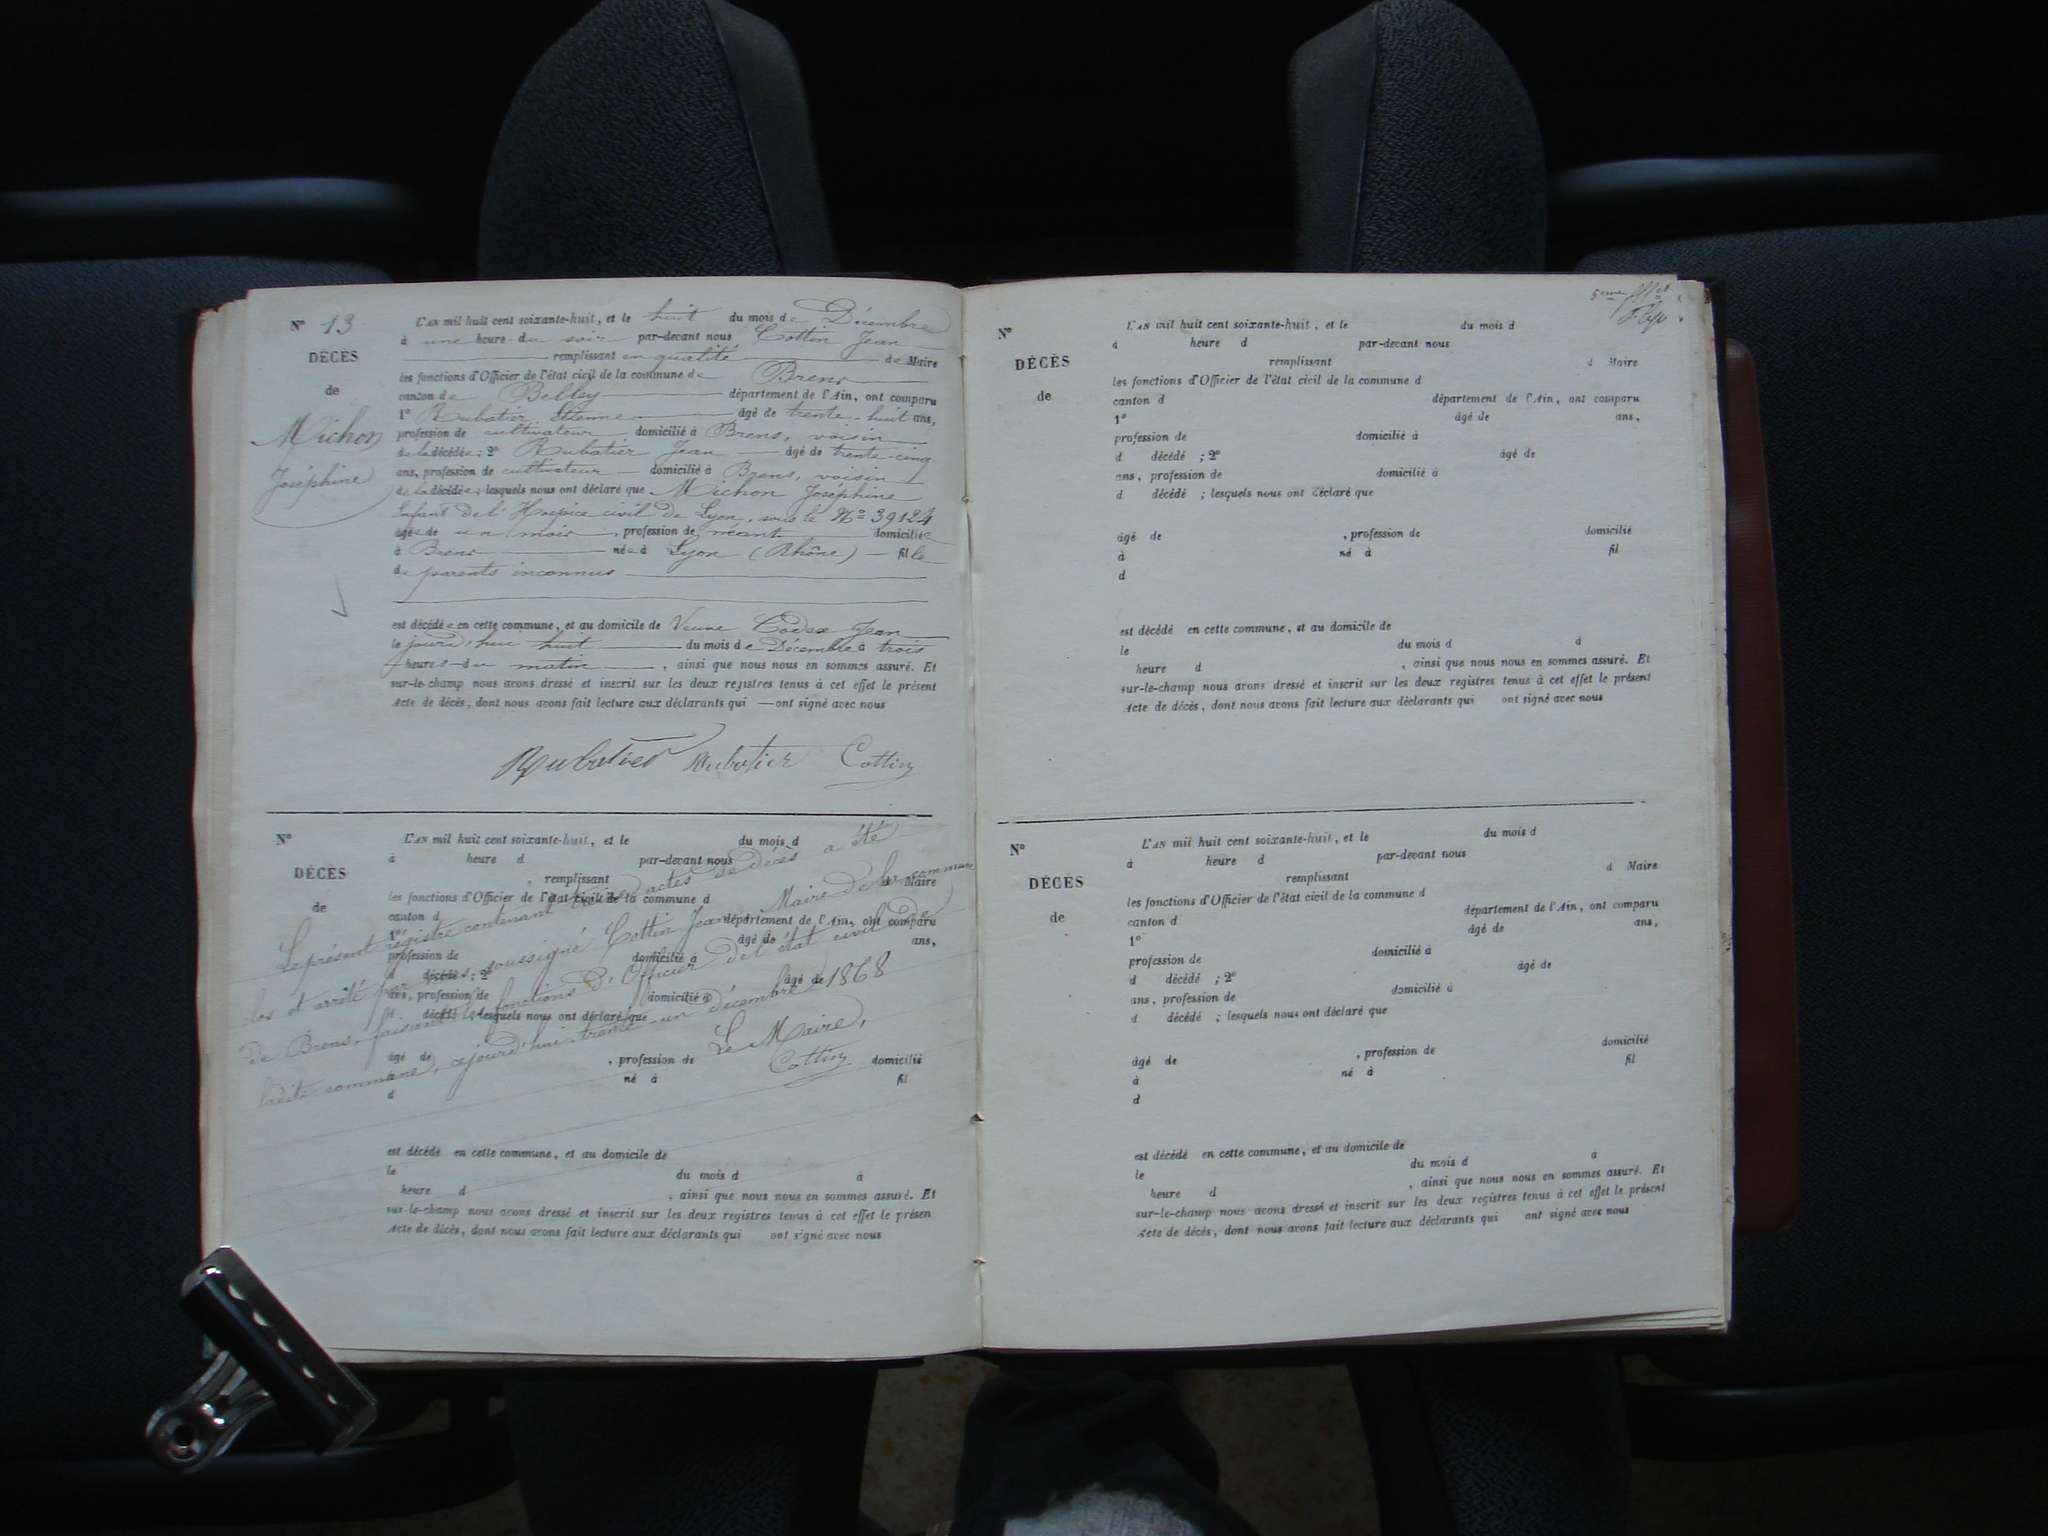 N° 13
DÉCÈS
de
Michon
Joséphine
L'AN mil huit cent soixante-huit, et le huit du mois de Décembre
à une heure du soir par-devant nous Cottin Jean
remplissant en qualité de Maire
les fonctions d'Officier de l'état civil de la commune de Brens
canton de Belley département de l'Ain, ont comparu
1° Rubatier Etienne âgé de trente-huit ans,
profession de cultivateur domicilié à Brens, voisin
de la décédée ; 2° Rubatier Jean âgé de trente-cinq
ans, profession de cultivateur domicilié à Brens, voisin
de la décédée ; lesquels nous ont déclaré que Michon Joséphine
Enfant de l'Hospice civil de Lyon, sous le N° 39124
âgée de un mois, profession de néant domiciliée
à Brens née à Lyon (Rhône) fille
de parents inconnus
est décédée en cette commune, et au domicile de Veuve Jean
le jourd'hui huit du mois de Décembre à trois
heures du matin, ainsi que nous nous en sommes assuré. Et
sur-le-champ nous avons dressé et inscrit sur les deux registres tenus à cet effet le présent
Acte de décès, dont nous avons fait lecture aux déclarants qui ont signé avec nous
Rubatier Rubatier Cottin
N°
DÉCÈS
de
L'AN mil huit cent soixante-huit, et le du mois d
à heure d par-devant nous
remplissant d Maire
les fonctions d'Officier de l'état civil de la commune d
canton d département de l'Ain, ont comparu
1° âgé de ans,
profession de domicilié à
d décédé ; 2° âgé de
ans, profession de domicilié à
d décédé ; lesquels nous ont déclaré que
âgé de , profession de domicilié
à né à fil
d
Le présent registre contenant actes de décès a été
clos et arrêté par nous soussigné Cottin Jean Maire de la commune
de Brens, faisant les fonctions d'Officier de l'état civil de
ladite commune, cejourd'hui trente-un décembre 1868
Le Maire,
Cottin
est décédé en cette commune, et au domicile de
le du mois d à
heure d , ainsi que nous nous en sommes assuré. Et
sur-le-champ nous avons dressé et inscrit sur les deux registres tenus à cet effet le présen
Acte de décès, dont nous avons fait lecture aux déclarants qui ont signé avec nous
5eme
N°
DÉCÈS
de
L'AN mil huit cent soixante-huit, et le du mois d
à heure d par-devant nous
remplissant d Maire
les fonctions d'Officier de l'état civil de la commune d
canton d département de l'Ain, ont comparu
1° âgé de ans,
profession de domicilié à
d décédé ; 2° âgé de
ans, profession de domicilié à
d décédé ; lesquels nous ont déclaré que
âgé de , profession de domicilié
à né à fil
d
est décédé en cette commune, et au domicile de
le du mois d à
heure d , ainsi que nous nous en sommes assuré. Et
sur-le-champ nous avons dressé et inscrit sur les deux registres tenus à cet effet le présent
Acte de décès, dont nous avons fait lecture aux déclarants qui ont signé avec nous
N°
DÉCÈS
de
L'AN mil huit cent soixante-huit, et le du mois d
à heure d par-devant nous
remplissant d Maire
les fonctions d'Officier de l'état civil de la commune d
canton d département de l'Ain, ont comparu
1° âgé de ans,
profession de domicilié à
d décédé ; 2° âgé de
ans, profession de domicilié à
d décédé ; lesquels nous ont déclaré que
âgé de , profession de domicilié
à né à fil
d
est décédé en cette commune, et au domicile de
le du mois d à
heure d , ainsi que nous nous en sommes assuré. Et
sur-le-champ nous avons dressé et inscrit sur les deux registres tenus à cet effet le présent
Acte de décès, dont nous avons fait lecture aux déclarants qui ont signé avec nous